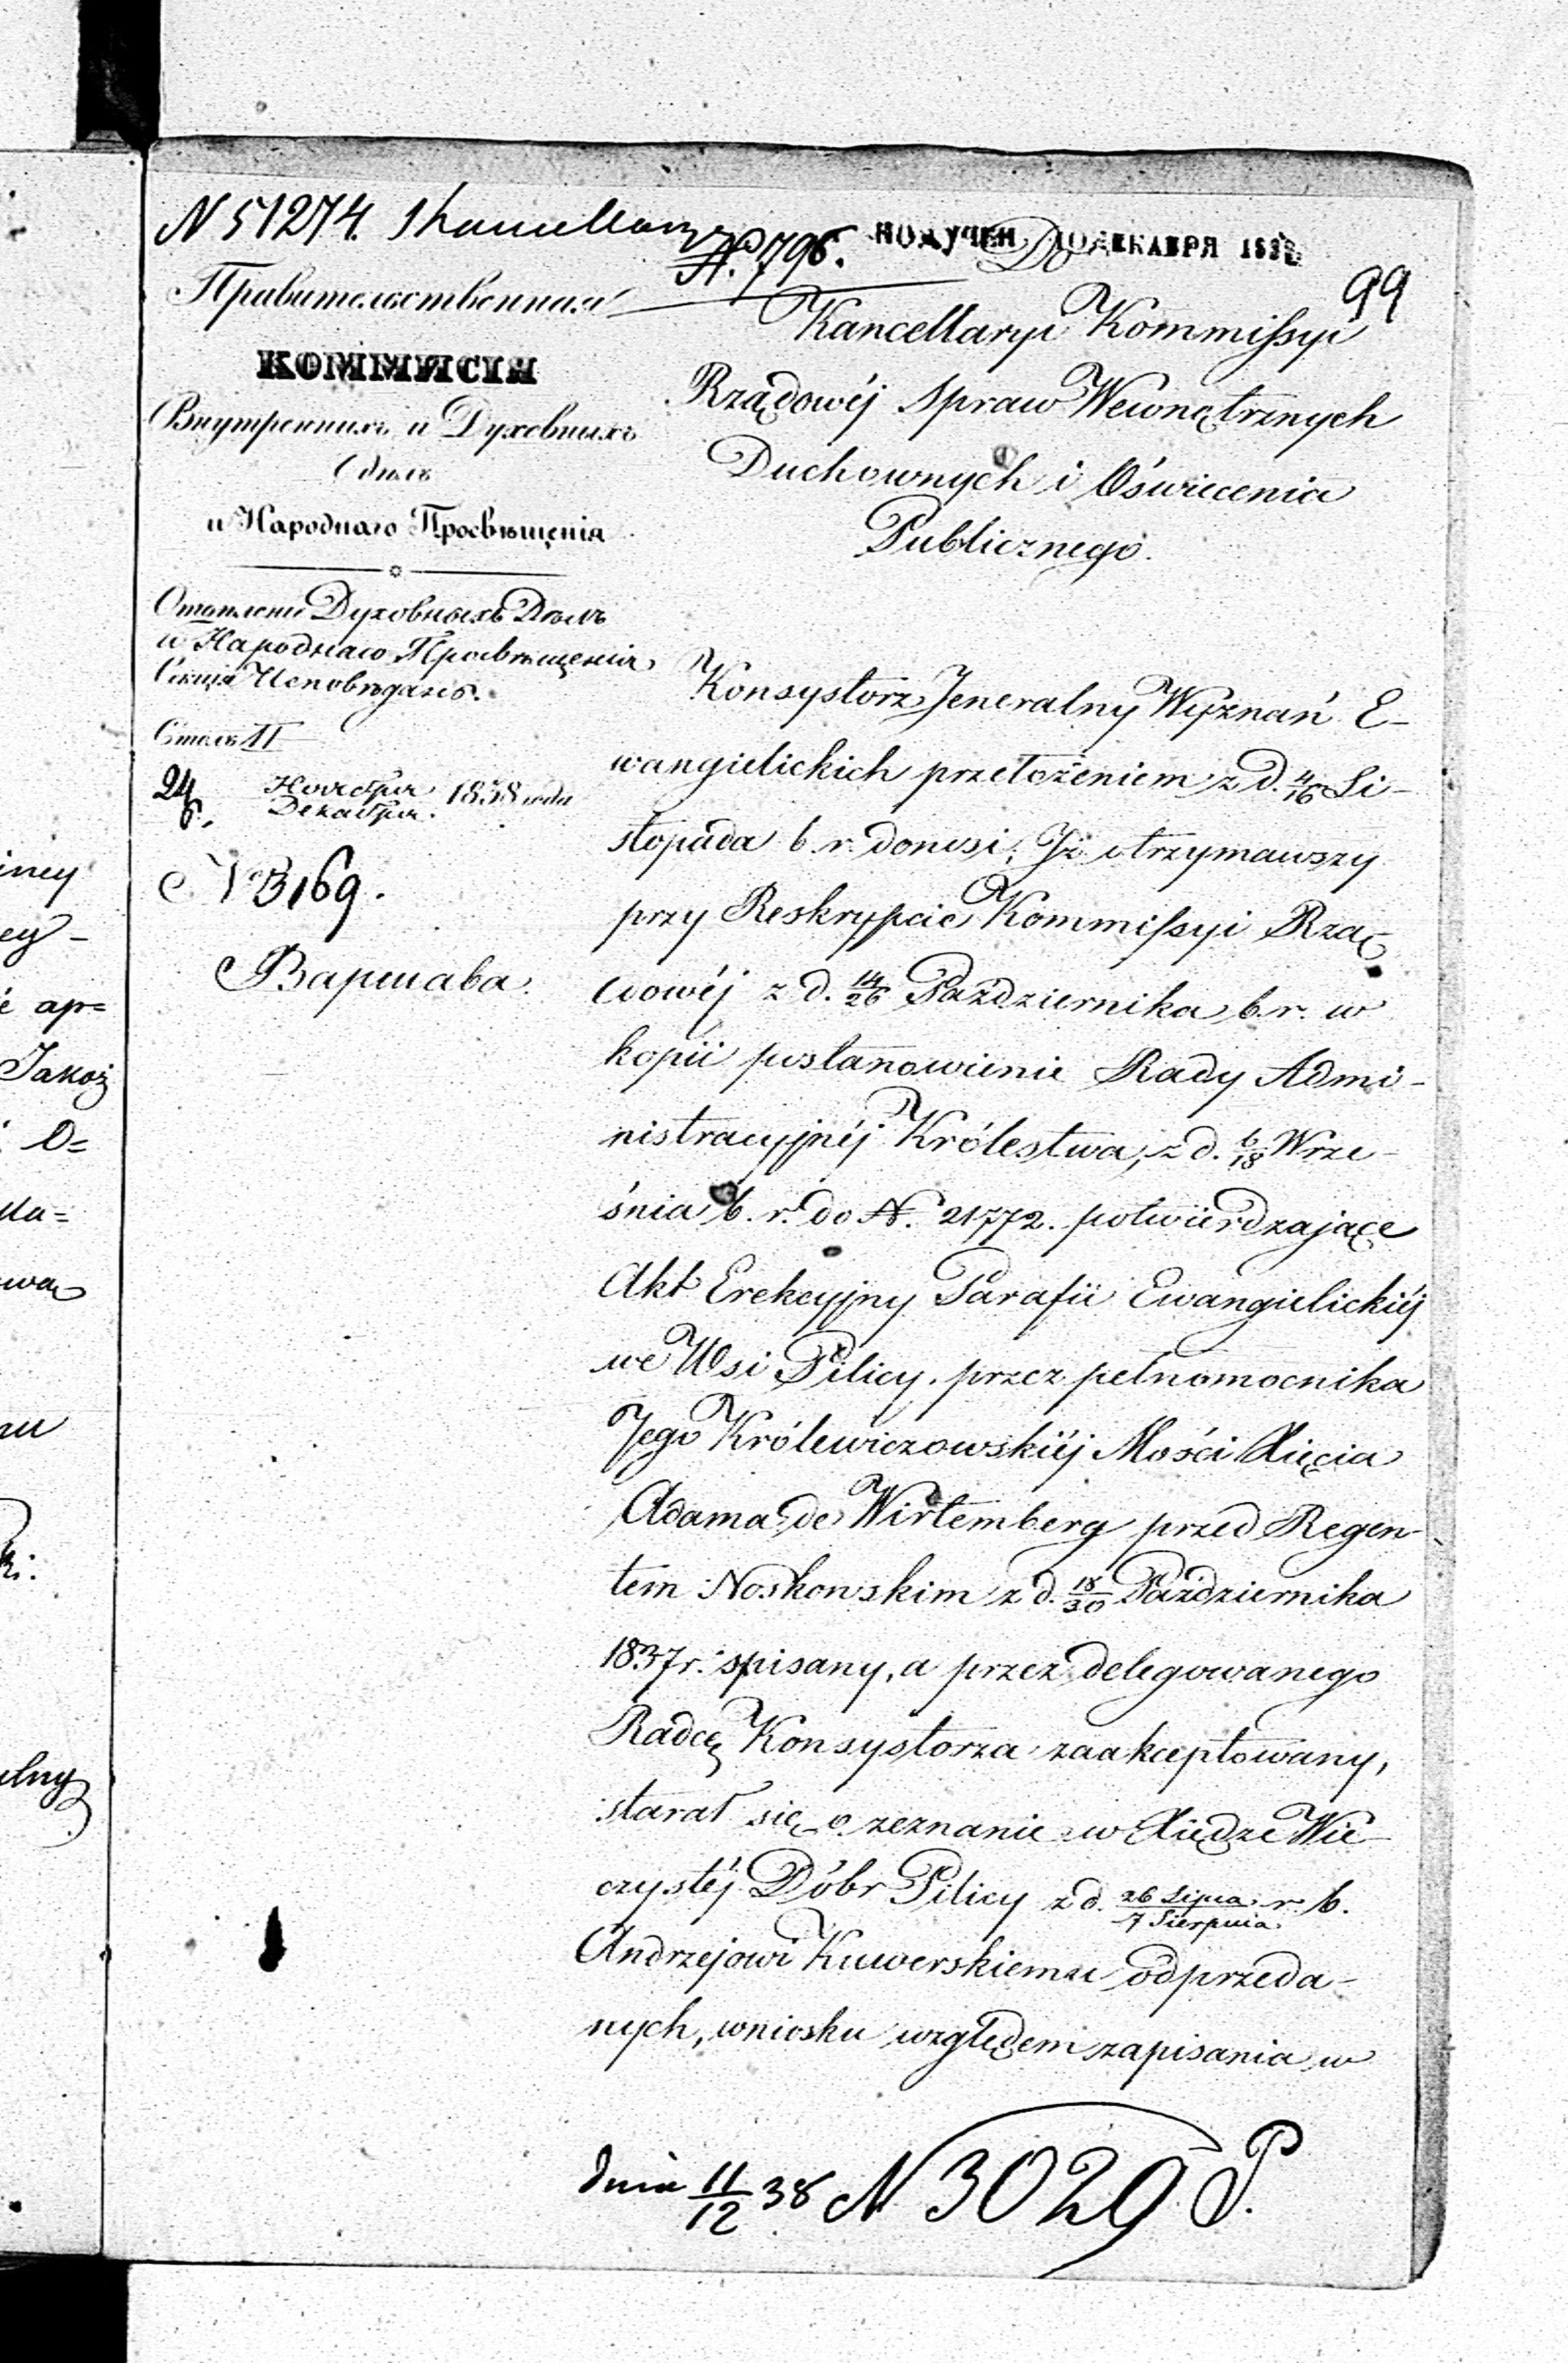 N 51274.
N. 796.
ПОЛУЧЕН 10 ДЕКАБРЯ 1838
99
Правительственная
КОММИСІЯ
Внутреннихъ и Духовныхъ
Дѣлъ
и Народнаго Просвѣщенія
Отдѣленіе Духовныхъ Дѣлъ
и Народнаго Просвѣщенія
Секція Исповѣданъ.
Столъ II
24/6. Ноября/Декабря. 1838 года
N 3169.
Варшава.
Do
Kancellaryi Kommissyi
Rządowéj Spraw Wewnętrznych
Duchownych i Oświecenia
Publicznego.
Konsystorz Jeneralny Wyznań E-
wangielickich przełożeniem z d. 4/16 Li-
stopada b. r. donosi; Iż otrzymawszy
przy Reskrypcie Kommissyi Rzą
dowéj z d. 14/26 Października b. r. w
kopii postanowienie Rady Admi-
nistracyjnéj Królestwa, z d. 6/18 Wrze-
śnia b. r. do N. 21772. potwierdzające
Akt Erekcyjny Parafii Ewangielickiéj
we Wsi Pilicy. przez pełnomocnika
Jego Królewiczowskiéj Mości Xięcia
Adama de Wirtemberg przed Regen-
tem Noskowskim z d. 18/30 Października
1837 r. spisany, a przez delegowanego
Radcę Konsystorza zaakceptowany,
starał się o zeznanie w Xiędze Wie-
czystéj Dóbr Pilicy z d. 26 Lipca/7 Sierpnia. r. b.
Andrzejowi Kuwerskiemu odprzeda-
nych, wniosku względem zapisania w
dnia 11/12 38 N 3029 P.
iney
ey-
é ap=
Jakoż
O=
wa
elny